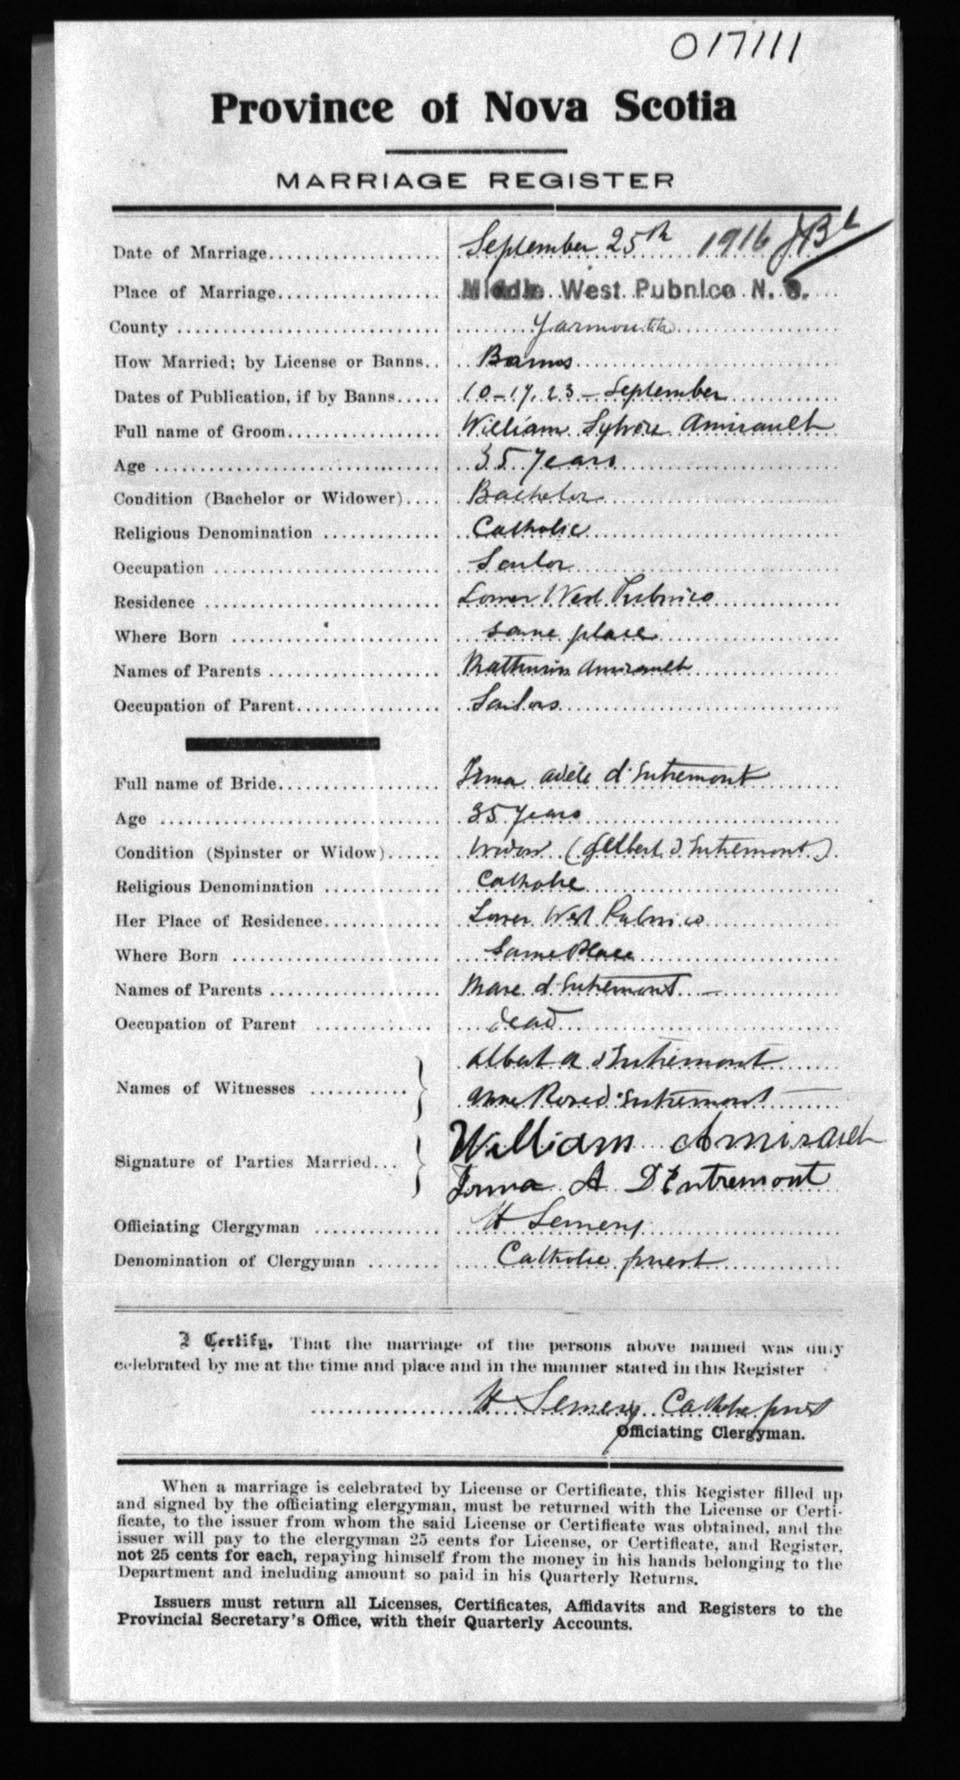 017111
Province of Nova Scotia
MARRIAGE REGISTER
Date of Marriage.................... September 25th 1916
Place of Marriage................... Middle West Pubnico N. S.
County ........................... Yarmouth
How Married; by License or Banns.. Banns
Dates of Publication, if by Banns..... 10-17. 23 - September
Full name of Groom.................. William Amirault
Age ............................... 35 years
Condition (Bachelor or Widower).... Bachelor
Religious Denomination ............ Catholic
Occupation ....................... Sailor
Residence ........................ Lower West Pubnico
Where Born ..................... same place
Names of Parents ................. Mathurin Amirault
Occupation of Parent............... Sailors
Full name of Bride................. Irma adèle d'Entremont
Age ............................. 35 years
Condition (Spinster or Widow)...... Widow (Gilbert d'Entremont)
Religious Denomination ............ Catholic
Her Place of Residence............. Lower West Pubnico
Where Born ..................... Same Place
Names of Parents ................. Marc d'Entremont
Occupation of Parent ............ dead
Albert a d'Entremont
Names of Witnesses ...........
Anne Rose d'Entremont
William Amirault
Signature of Parties Married...
Irma A D'Entremont
Officiating Clergyman .............
Denomination of Clergyman ........ Catholic priest
I Certify, That the marriage of the persons above named was duly
celebrated by me at the time and place and in the manner stated in this Register
Catholic priest
Officiating Clergyman.
When a marriage is celebrated by License or Certificate, this Register filled up
and signed by the officiating clergyman, must be returned with the License or Certi-
ficate, to the issuer from whom the said License or Certificate was obtained, and the
issuer will pay to the clergyman 25 cents for License, or Certificate, and Register,
not 25 cents for each, repaying himself from the money in his hands belonging to the
Department and including amount so paid in his Quarterly Returns.
Issuers must return all Licenses, Certificates, Affidavits and Registers to the
Provincial Secretary's Office, with their Quarterly Accounts.